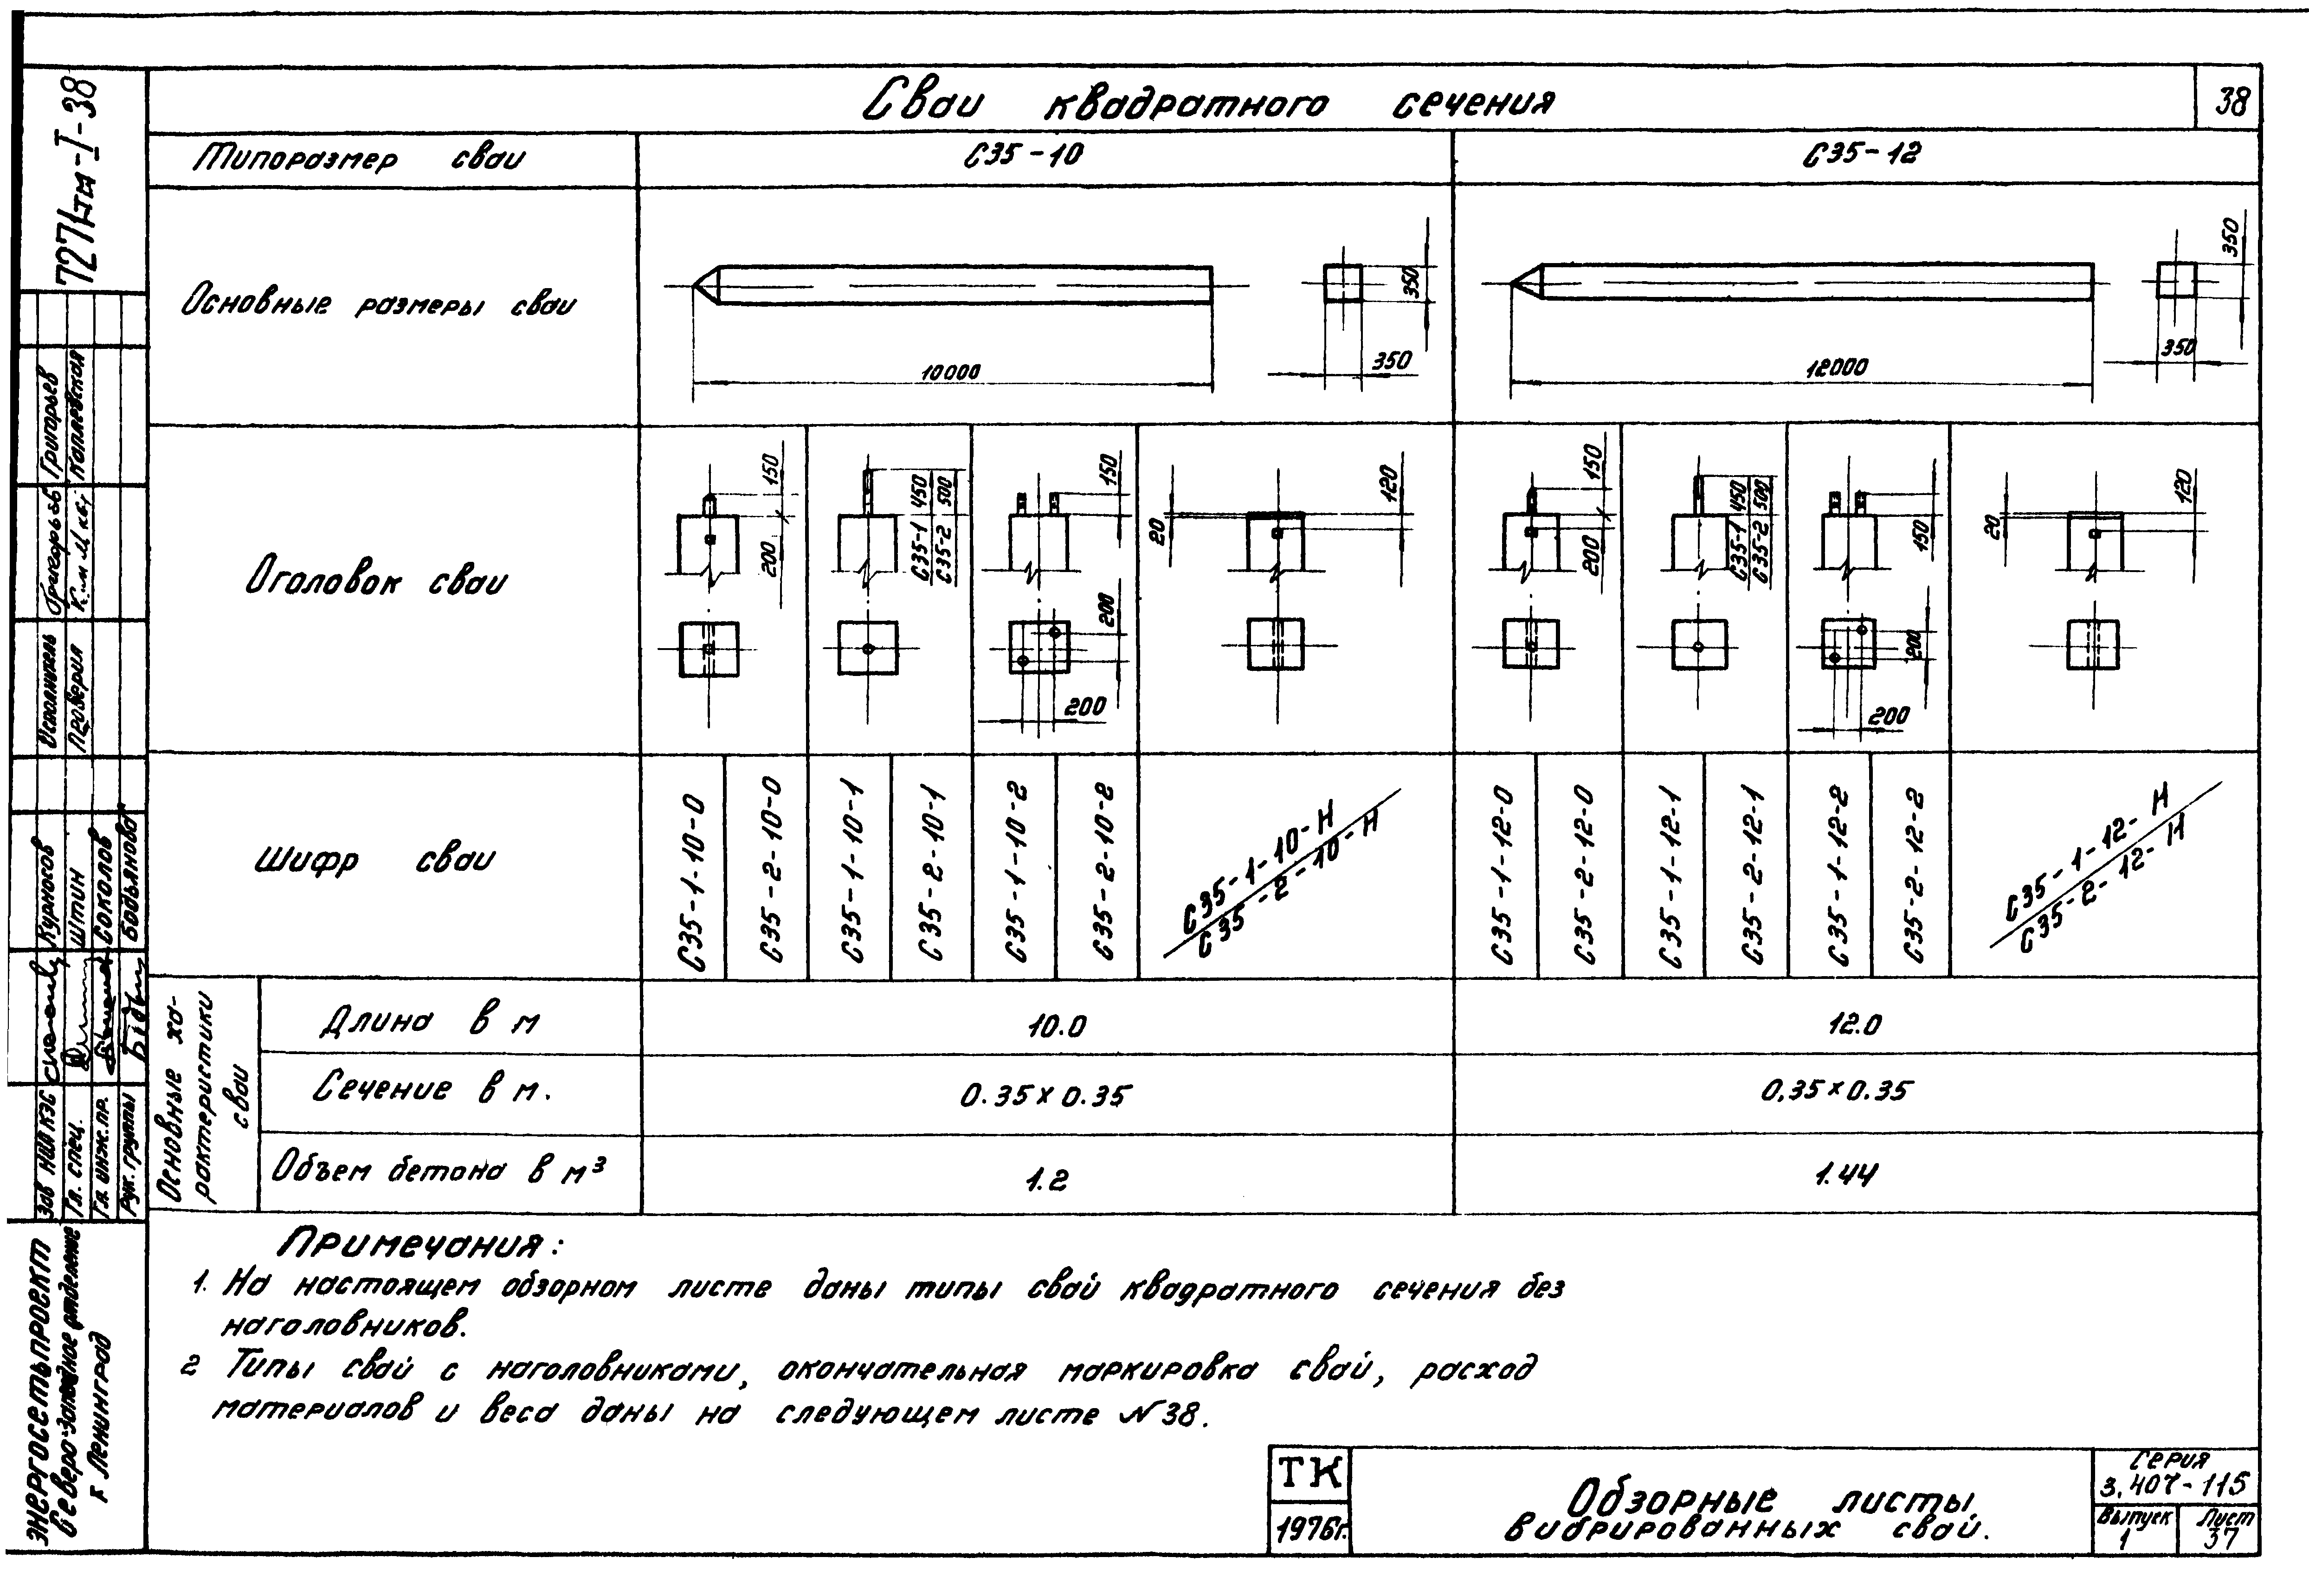 Сваи квадратного сечения
38
Типоразмер сваи
С35-10
С35-12
Основные размеры сваи
10000
350
350
12000
350
350
Оголовок сваи
150
200
С35-1 450
С35-2 500
150
200
200
20
120
150
200
С35-1 450
С35-2 500
150
200
200
20
120
Шифр сваи
С35-1-10-0
С35-2-10-0
С35-1-10-1
С35-2-10-1
С35-1-10-2
С35-2-10-2
С35-1-10-Н
С35-2-10-Н
С35-1-12-0
С35-2-12-0
С35-1-12-1
С35-2-12-1
С35-1-12-2
С35-2-12-2
С35-1-12-Н
С35-2-12-Н
Основные ха-
рактеристики
сваи
Длина в м
10.0
12.0
Сечение в м.
0.35х0.35
0,35х0.35
Объем бетона в м³
1.2
1.44
Примечания:
1. На настоящем обзорном листе даны типы свай квадратного сечения без
наголовников.
2 Типы свай с наголовниками, окончательная маркировка свай, расход
материалов и веса даны на следующем листе №38.
ТК
1976г.
Обзорные листы
вибрированных свай.
Серия
3.407-115
Выпуск
1
Лист
37
7271тм-I-38
Григорьев
Исполнитель
Проверил
Курносов
Штин
Соколов
Зав НИЛКЭС
Гл. спец.
Гл. инж. пр.
Рук. группы
ЭНЕРГОСЕТЬПРОЕКТ
Северо-Западное отделение
г. Ленинград